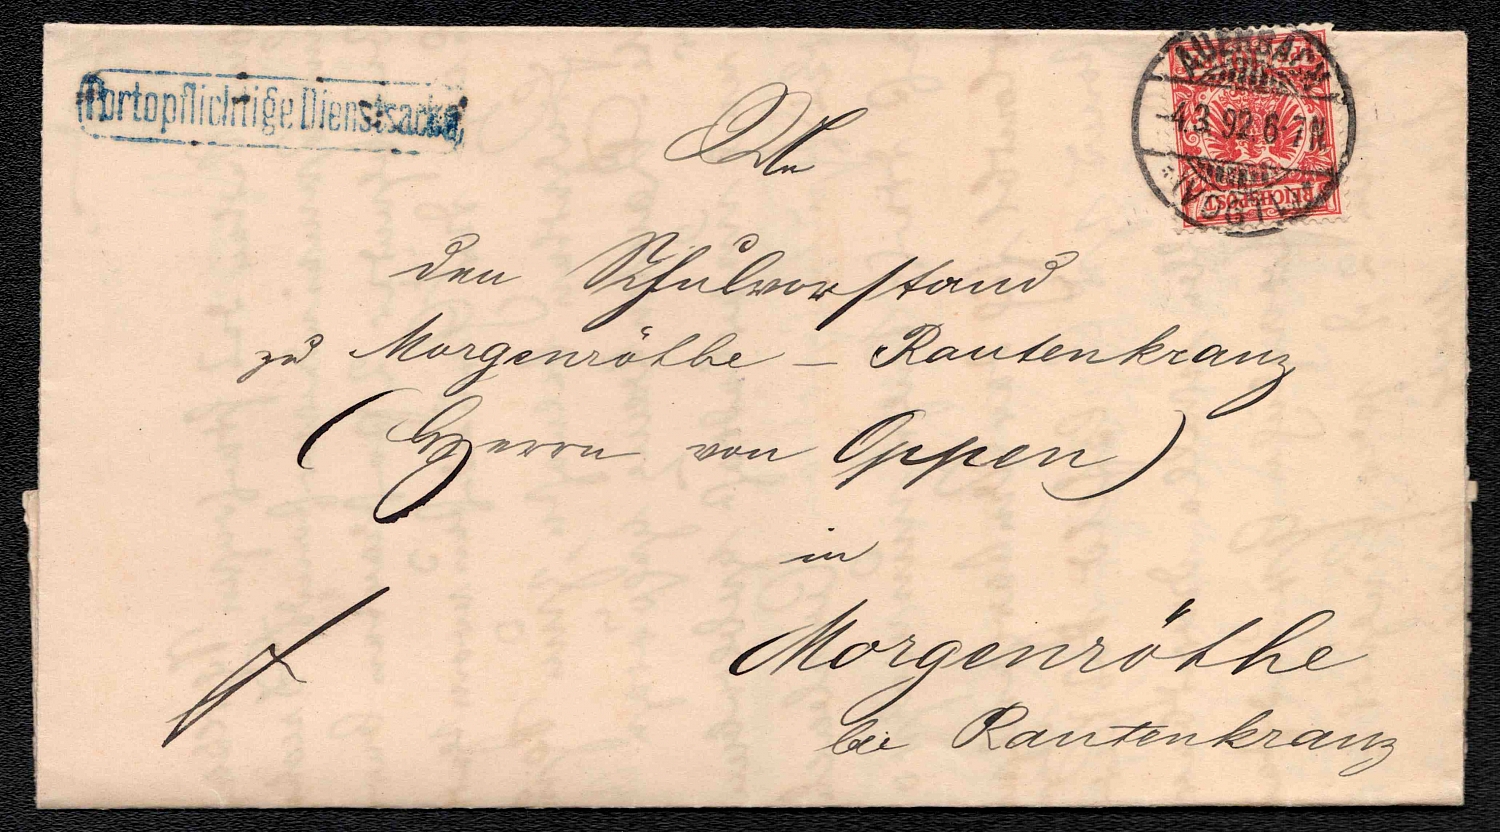 Portopflichtige Dienstsache
AUERBACH
4.3.92.6-7N.
(VOGTL.)
REICHSPOST
An
den Schulvorstand
zu Morgenröthe – Rautenkranz
(Herrn von Oppen)
in
Morgenröthe
bei Rautenkranz